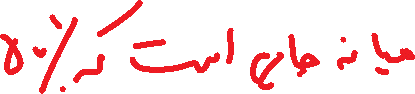 میانه جایی است که ۵۰٪